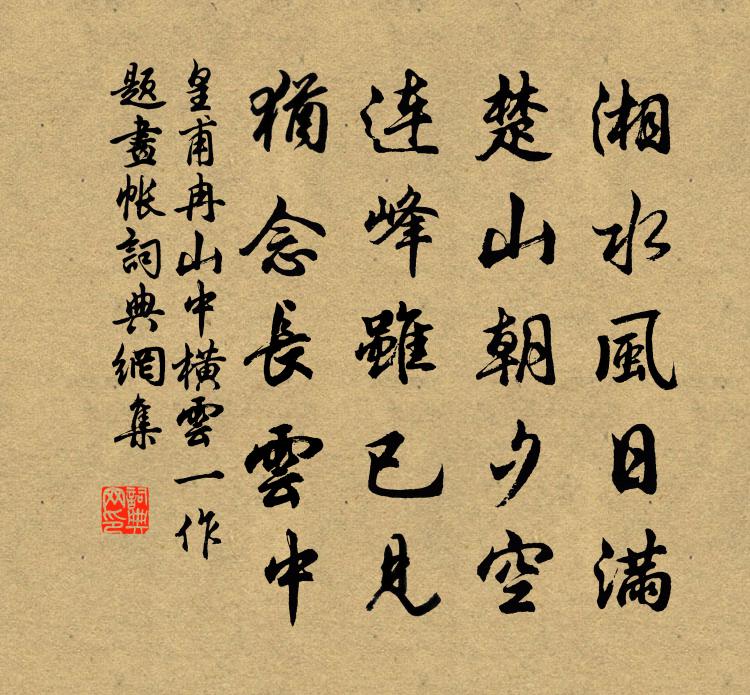 湘水風日滿
楚山朝夕空
连峰雖已見
猶念長雲中
皇甫冉山中橫雲一作
題畫帳詞典網集
詞典網印